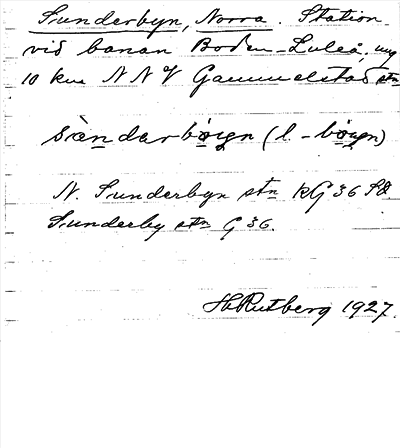 Sunderbyn, Norra. Station
vid banan Boden-Luleå, ung
10 km NNV Gammelstad stn
sèndarbòyn (l. -bòyn)
N. Sunderbyn stn kG 36 Sö.
Sunderby stn G 36.
H Rutberg 1927.